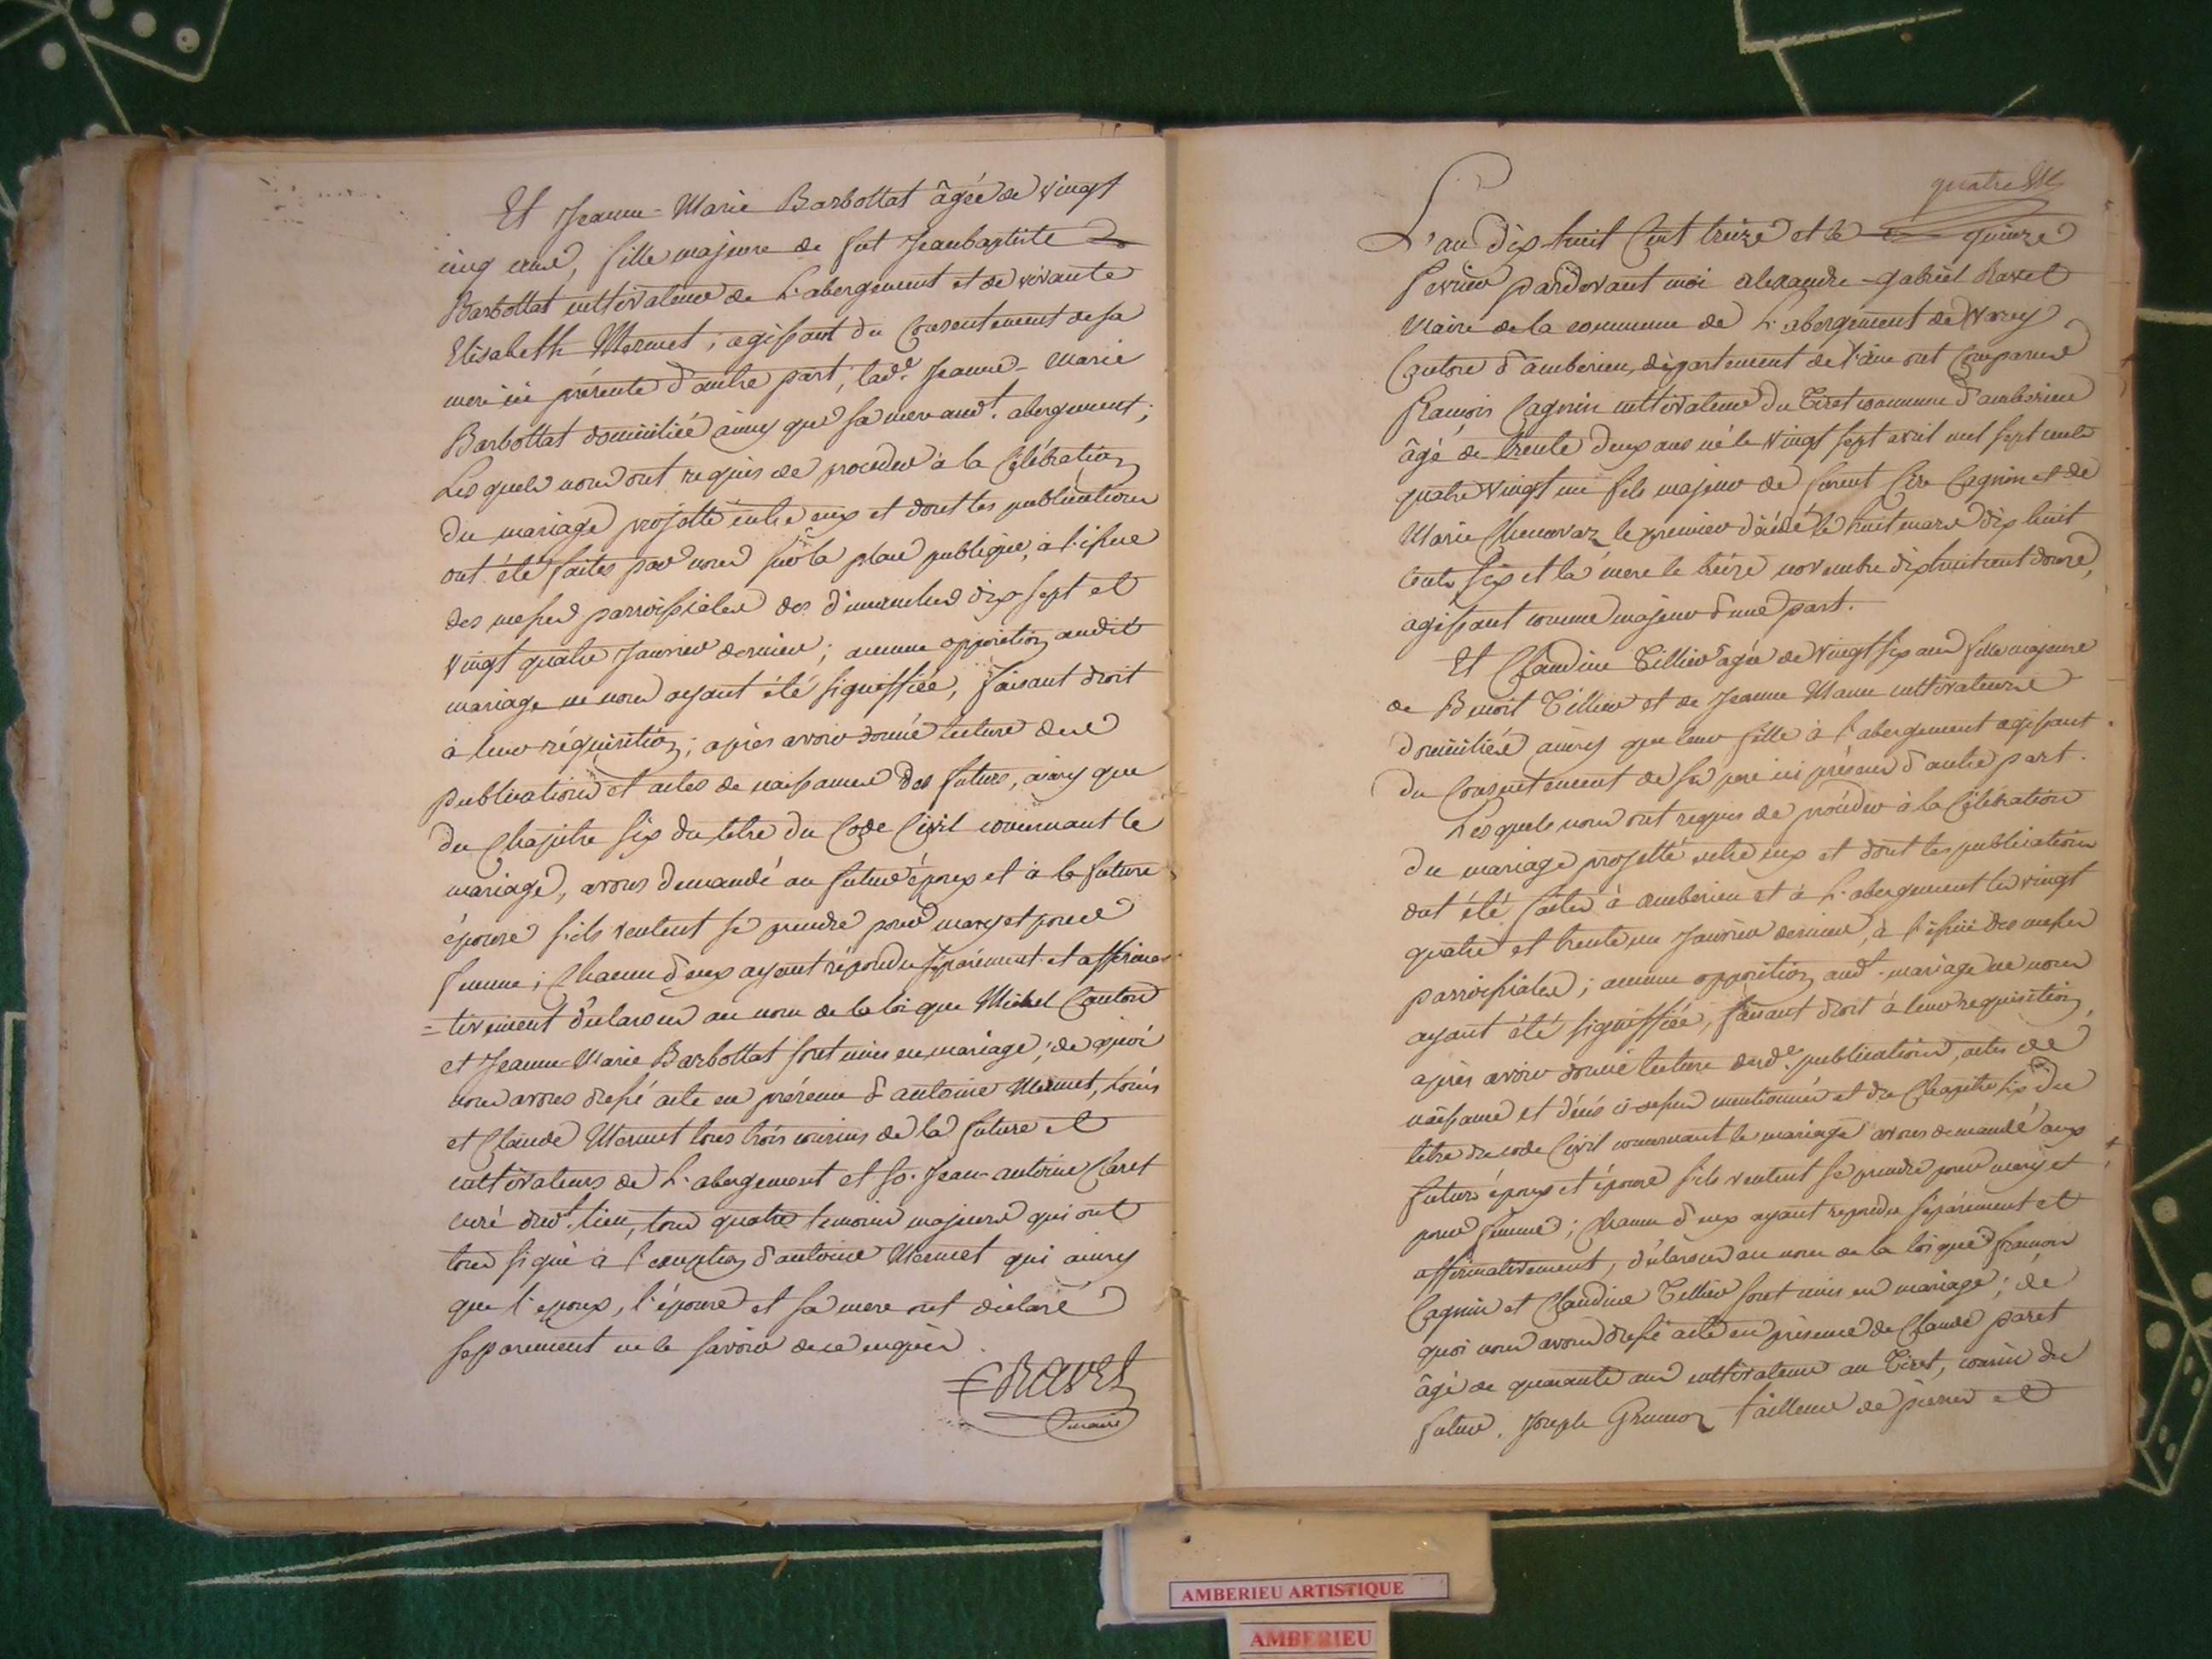 Et Jeanne-Marie Barbottat âgée de vingt
cinq ans, fille majeure de fut Jeanbaptiste
Barbottat cultivateur de L'abergement et de vivante
Elisabeth Mermet; agissant du Consentement de sa
mere ici présente d'autre part, lad.e Jeanne-Marie
Barbottat domiciliée ainsy que sa mere aud.t abergement;
Lesquels nous ont requis de proceder à la Célébration
du mariage projetté entre eux et dont les publications
ont été faites par nous sur la place publique, à l'issue
des messes parroissiales des dimanches dix-sept et
vingt quatre Janvier dernier; aucune opposition audit
mariage ne nous ayant été signiffiée, faisant droit
à leur réquisition; après avoir donné lecture des
publications et actes de naissances des futurs, ainsy que
du Chapitre six du titre du Code Civil concernant le
mariage, avons demandé au futur époux et à la future
épouse s'ils veulent se prendre pour mary et pour
femme; Chacun d'eux ayant répondu séparément et affirma
=tivement déclarons au nom de la loi que Michel Canton
et Jeanne-Marie Barbottat sont unis en mariage; de quoi
nous avons dressé acte en présence d'antoine Mermet, Louis
et Claude Mermet tous trois cousins de la future et
cultivateurs de L'abergement et Sr. Jean-antoine Claret
curé dud.t lieu, tous quatre temoins majeurs qui ont
tous signé à l'exception d'antoine Mermet qui ainsy
que l'epoux, l'épouse et sa mere ont déclaré
separement ne le savoir de ce enquis.
Ravet
maire
quatre
L'an dix huit Cent treize et le quinze
fevrier pardevant moi alexandre-gabriel Ravet
Maire de la commune de L'abergement de Varey
Canton d'amberieu, département de l'ain ont Comparus
François Cagnin cultivateur du Tiret commune d'amberieu
âgé de trente deux ans né le vingt sept avril mil sept cents
quatre vingt un fils majeur de Cagnin et de
Marie Chenavaz le premier décédé le huit mars dix huit
Cents six et la mere le treize novembre dixhuit cent douze,
agissant comme majeur d'une part.
Et Claudine Tillier agée de vingt six ans fille majeure
de Benoit Tillier et de Jeanne Mame cultivateurs
domiciliés ainsy que leur fille à l'abergement agissant
du Consentement de sa pere ici présens d'autre part.
Lesquels nous ont requis de procéder à la Célébration
du mariage projetté entre eux et dont les publications
ont été faites à amberieu et à L'abergement les vingt
quatre et trente un Janvier dernier, à l'issue des messes
parroissiales; aucune opposition aud.t mariage ne nous
ayant été signiffiée, faisant droit à leur requisition,
après avoir donné lecture desd.es publications, actes de
naissance et décès ci-dessus mentionnés et du Chapitre six du
titre du code Civil concernant le mariage avons demandé aux
futurs époux et épouse s'ils veulent se prendre pour mary et
pour femme; Chacun d'eux ayant repondu séparément et
affirmativement, déclarons au nom de la loi que françois
Cagnin et Claudine Tillier sont unis en mariage; de
quoi nous avons dressé acte en présence de Claude paret
âgé de quarante ans cultivateur au Tiret, cousin du
futur, Joseph tailleur de pierres et
AMBERIEU ARTISTIQUE
AMBERIEU